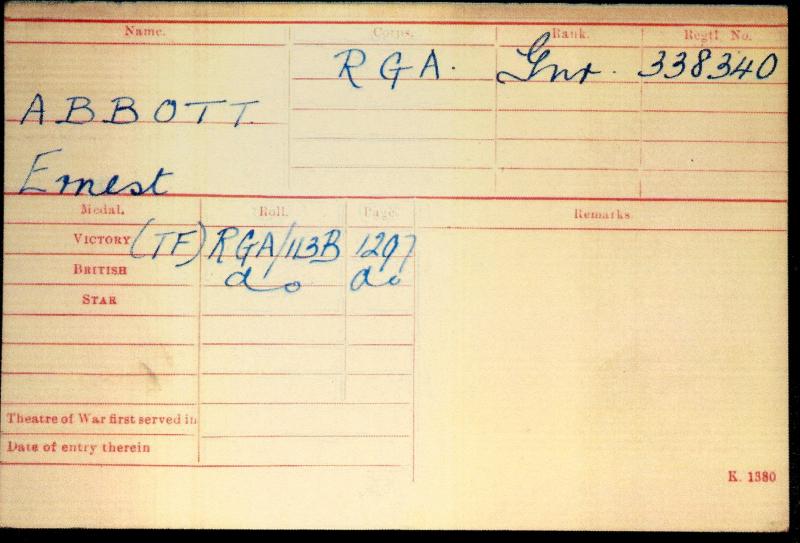 Name. Corps. Rank. Regtl. No.
R G A. Gnr. 338340
ABBOTT
Ernest
Medal. Roll. Page. Remarks.
VICTORY (TF) RGA/113B 1297
BRITISH do do
STAR
Theatre of War first served in
Date of entry therein
K. 1380